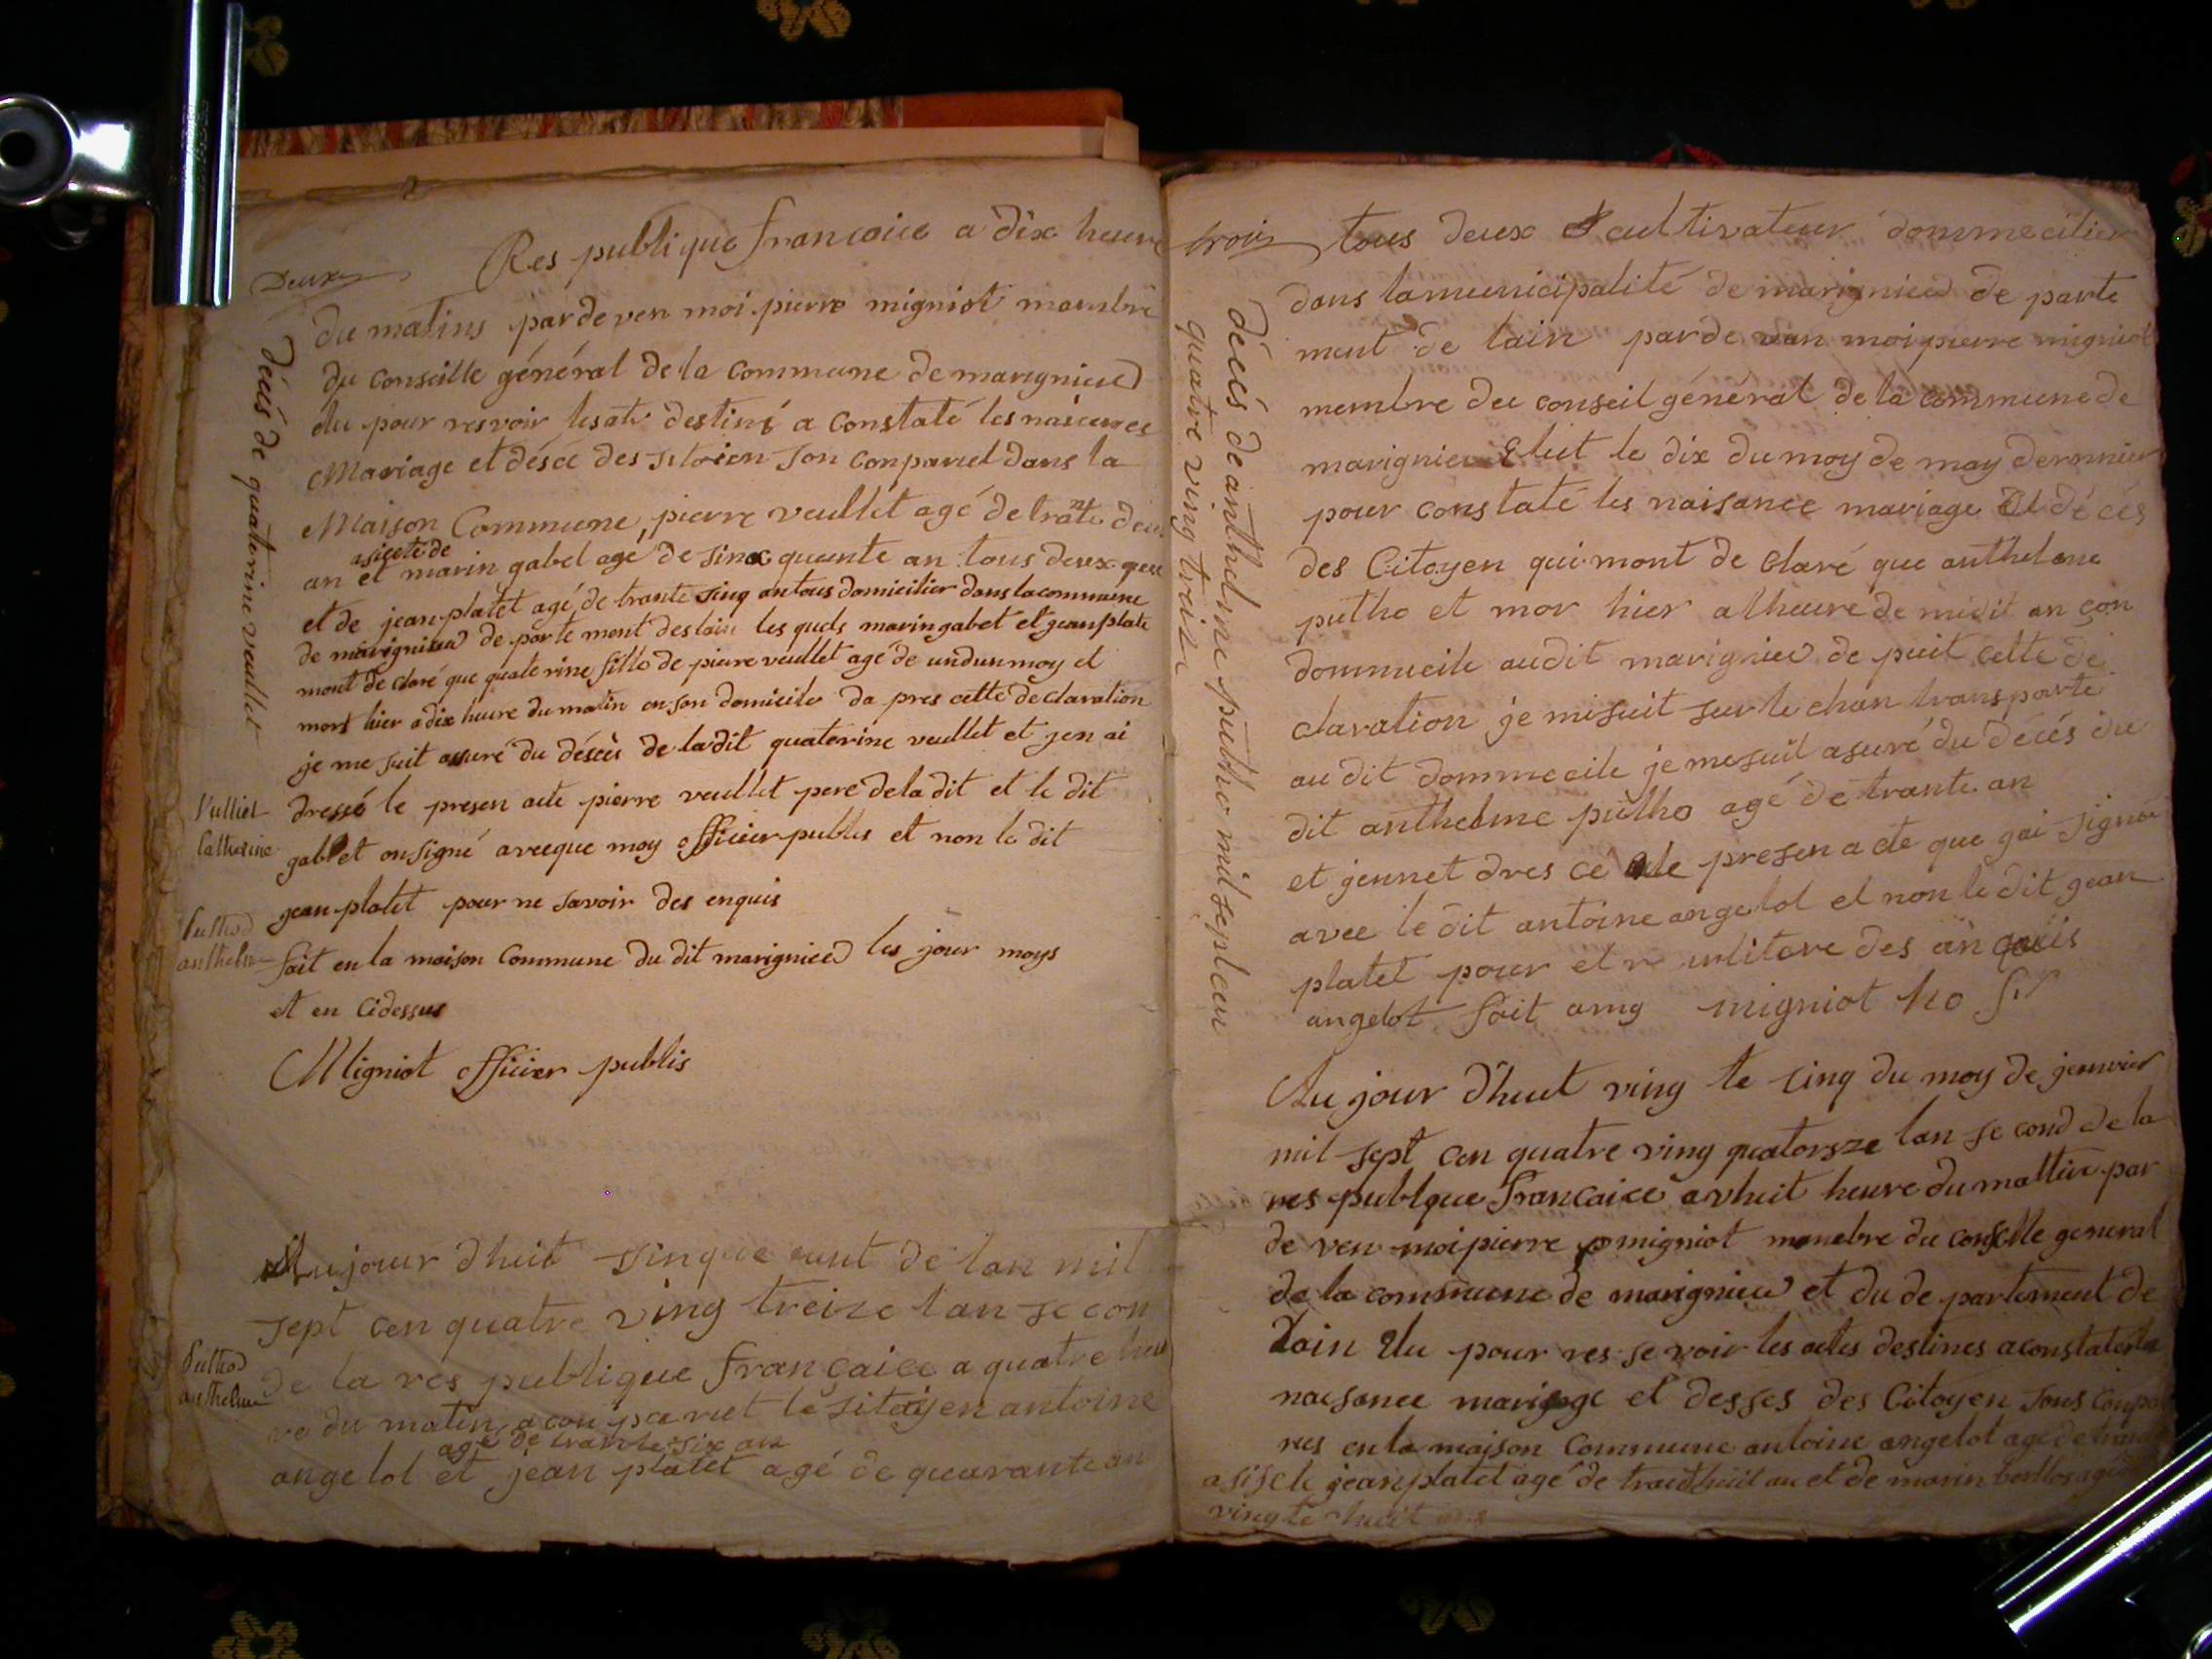 Deux
Res publique francoice a dix heure
du matins par deven moi pierre migniot manbre
du conseille général de la Commune de marignieu
élu pour resvoir les ate destiné a Constaté les naicences
Mariage et désée des sitoien son conparuet dans la
Maison Commune, pierre veullet agé de trante deu
asisete de
an et marin gabet agé de sinquante an tous deux
et de jean platet agé de trante sinq an tous domicilier dans la commune
de marignieu de parte ment des lain les quels marin gabet et jean plate
mont de claré que quaterine fille de piere veullet age de un dun moy et
mort hier a dix heure du matin en son domicile da pres cette declaration
je me suit assuré du désces de la dit quaterine veullet et jen ai
dressé le presen acte pierre veullet pere de la dit et le dit
gabet on signé avecque moy officier publis et non le dit
jean platet pour ne savoir des enquis
fait en la maison Commune du dit marignieu les jour moys
et en cidessus
Migniot officier publis
décès de quaterine veullet
Vulliet
Catherine
Puthod
anthelme
Aujour dhuit sinque de lan mil
sept cen quatre ving treize lan se con
de la res publique françaice a quatre heu
re du matin a conparuet le sitoyen antoine
agé de trante six an
angelot et jean platet agé de quarante an
Puthod
anthelme
trois
tous deux cultivateur dommecilier
dans la municipalité de marignieu de parte
ment de lain par de van moi pierre migniot
membre deu conseil général de la commune de
marignieu Eluit le dix du moy de may dernnier
pour constaté les naisance mariage Et décés
des Citoyen qui mont de claré que anthelme
putho et mor hier a lheure de midit an çon
dommicile audit marignieu de puit cette dé
claration je misuit sur le chan transporté
au dit dommecile je me suit asuré du décés du
dit anthelme putho agé de trante an
et jennet dres ce le presen acte que gai signée
avec le dit antoine angelot et non le dit jean
platet pour et re des an quis
angelot fait amg migniot ho fir
décés de anthelme putho mil sept cen
quatre ving treize
Au jour d'huit ving te cinq du moy de jenvier
mil sept cen quatre ving quatorsze lan se cond de la
res publque francaice a vhuit heure du mattin par
de ven moi pierre migniot menebre du conselle general
de la commune de marignieu et du de partement de
Lain Elu pour res se voir les actes destines a constater les
naisance mariage et desses des Citoyen sons conpa
rus en la maison Commune antoine angelot age de trante
asiste jean platet agé de trant huit an et de marin berthos agé
ving te huit ans